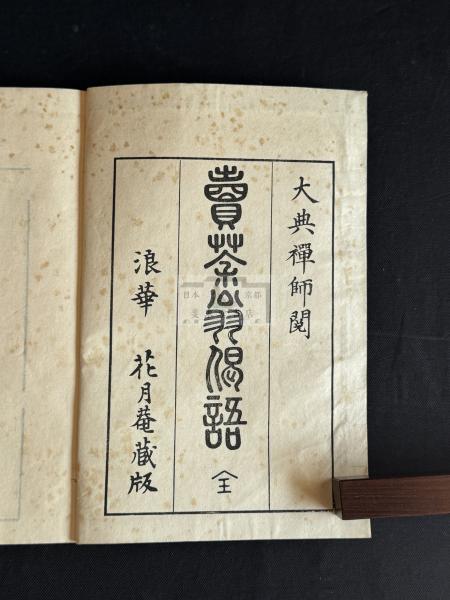 大典禪師閱
賣茶翁偈語 全
浪華 花月菴藏版
日本 京都